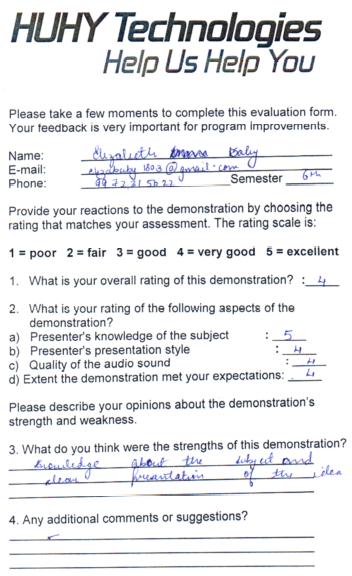 HUHY Technologies
Help Us Help You
Please take a few moments to complete this evaluation form.
Your feedback is very important for program improvements.
Name: Elizabeth Baby
E-mail: 1803@gmail.com
Phone: Semester 6th
Provide your reactions to the demonstration by choosing the
rating that matches your assessment. The rating scale is:
1 = poor 2 = fair 3 = good 4 = very good 5 = excellent
1. What is your overall rating of this demonstration? : 4
2. What is your rating of the following aspects of the
demonstration?
a) Presenter's knowledge of the subject : 5
b) Presenter's presentation style : 4
c) Quality of the audio sound : 4
d) Extent the demonstration met your expectations: 4
Please describe your opinions about the demonstration's
strength and weakness.
3. What do you think were the strengths of this demonstration?
knowledge about the subject and
clear presentation of the idea
4. Any additional comments or suggestions?